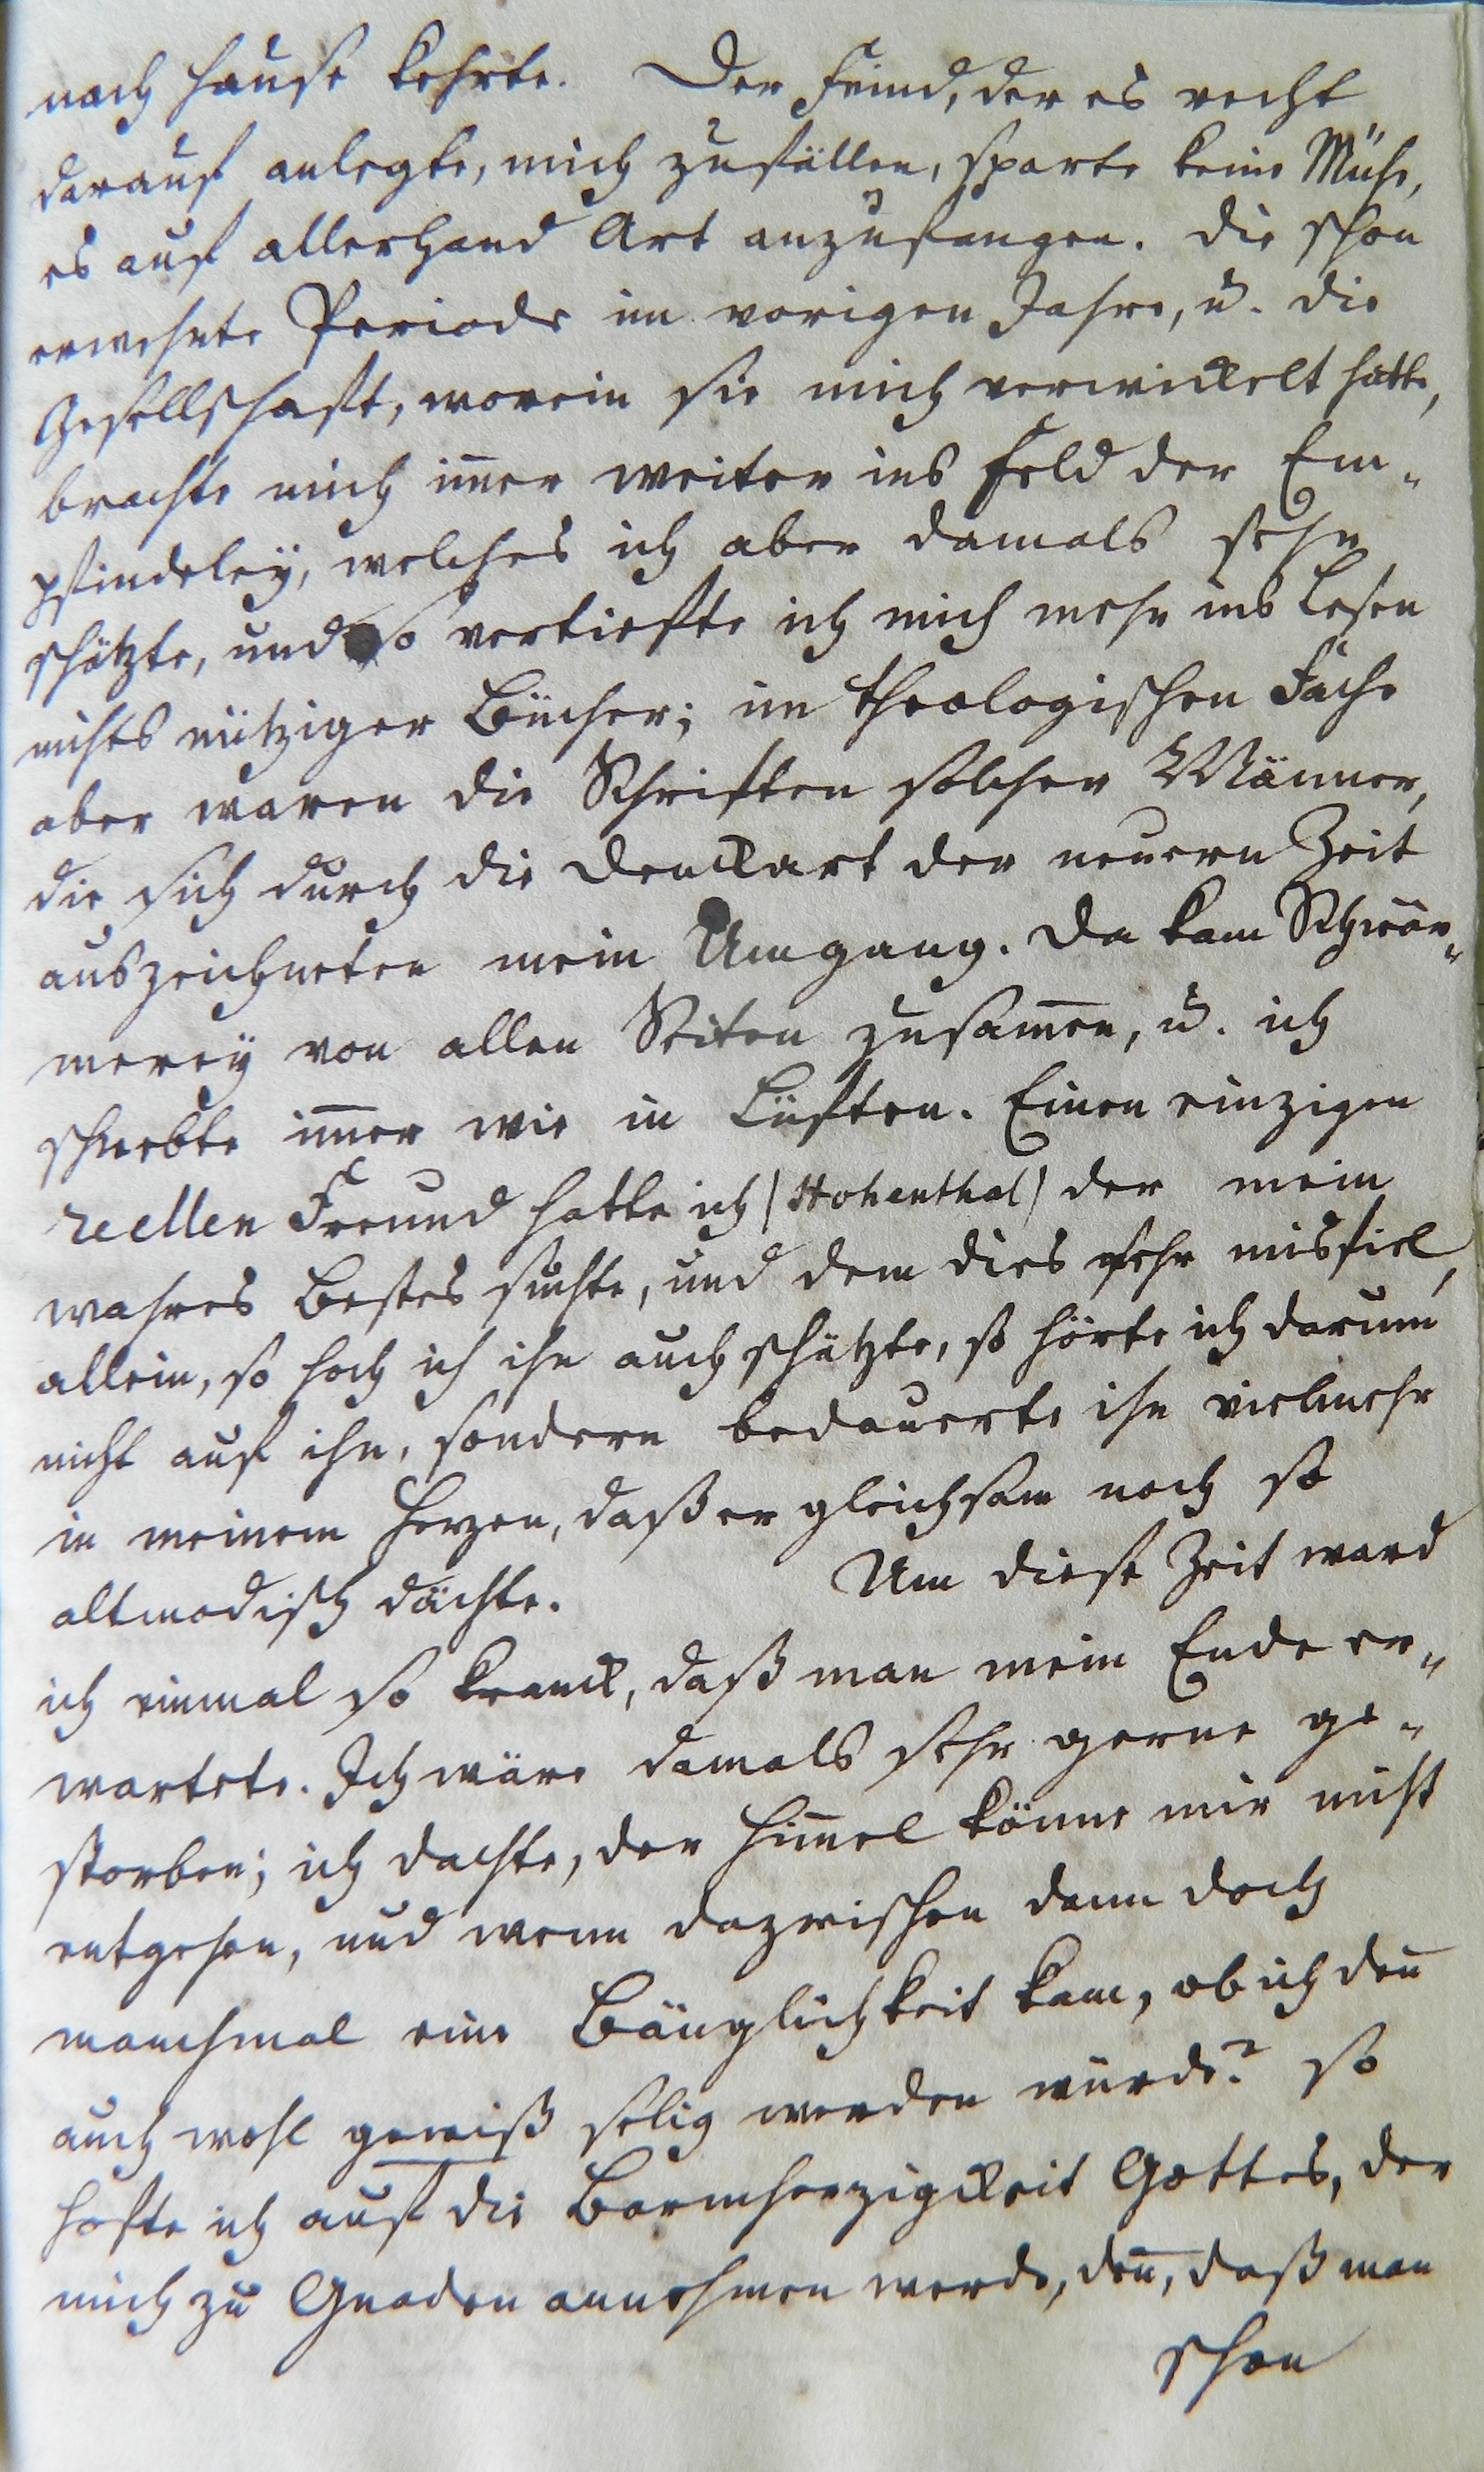 nach Hause kehrte. Der Feind, der es recht
darauf anlegte, mich zufällen, sparte keine Mühe,
es auf allerhand Art anzufangen. Die schon
erwehnte Periode im vorigen Jahre, u. die
Gesellschaft, worein sie mich verwickelt hatte,
brachte mich im̄er weiter ins Feld der Em-
pfindeley, welches ich aber damals sehr
schätzte, und so vertiefte ich mich mehr ins Lesen
nichts nütziger Bücher; im theologischen Fache
aber waren die Schriften solcher Männer,
die sich durch die Denckart der neuern Zeit
auszeichneten mein Umgang. Da kam Schwär-
merey von allen Seiten zusam̄en, u. ich
schwebte im̄er wie in Lüften. Einen einzigen
reellen Freund hatte ich (Hohenthal) der mein
wahres Bestes suchte, und dem dies sehr misfiel,
allein, so hoch ich ihn auch schätzte, so hörte ich darum
nicht auf ihn, sondern bedauerte ihn vielmehr
in meinem Herzen, daß er gleichsam noch so
altmodisch dächte. Um diese Zeit ward
ich einmal so kranck, daß man mein Ende er-
wartete. Ich wäre damals sehr gerne ge-
storben; ich dachte, der Him̄el könne mir nicht
entgehen, und wenn dazwischen dann doch
manchmal eine Bänglichkeit kam, ob ich den̄
auch wohl gewiß selig werden würde? so
hofte ich auf die Barmherzigckeit Gottes, der
mich zu Gnaden annehmen werde, den̄, daß man
schon